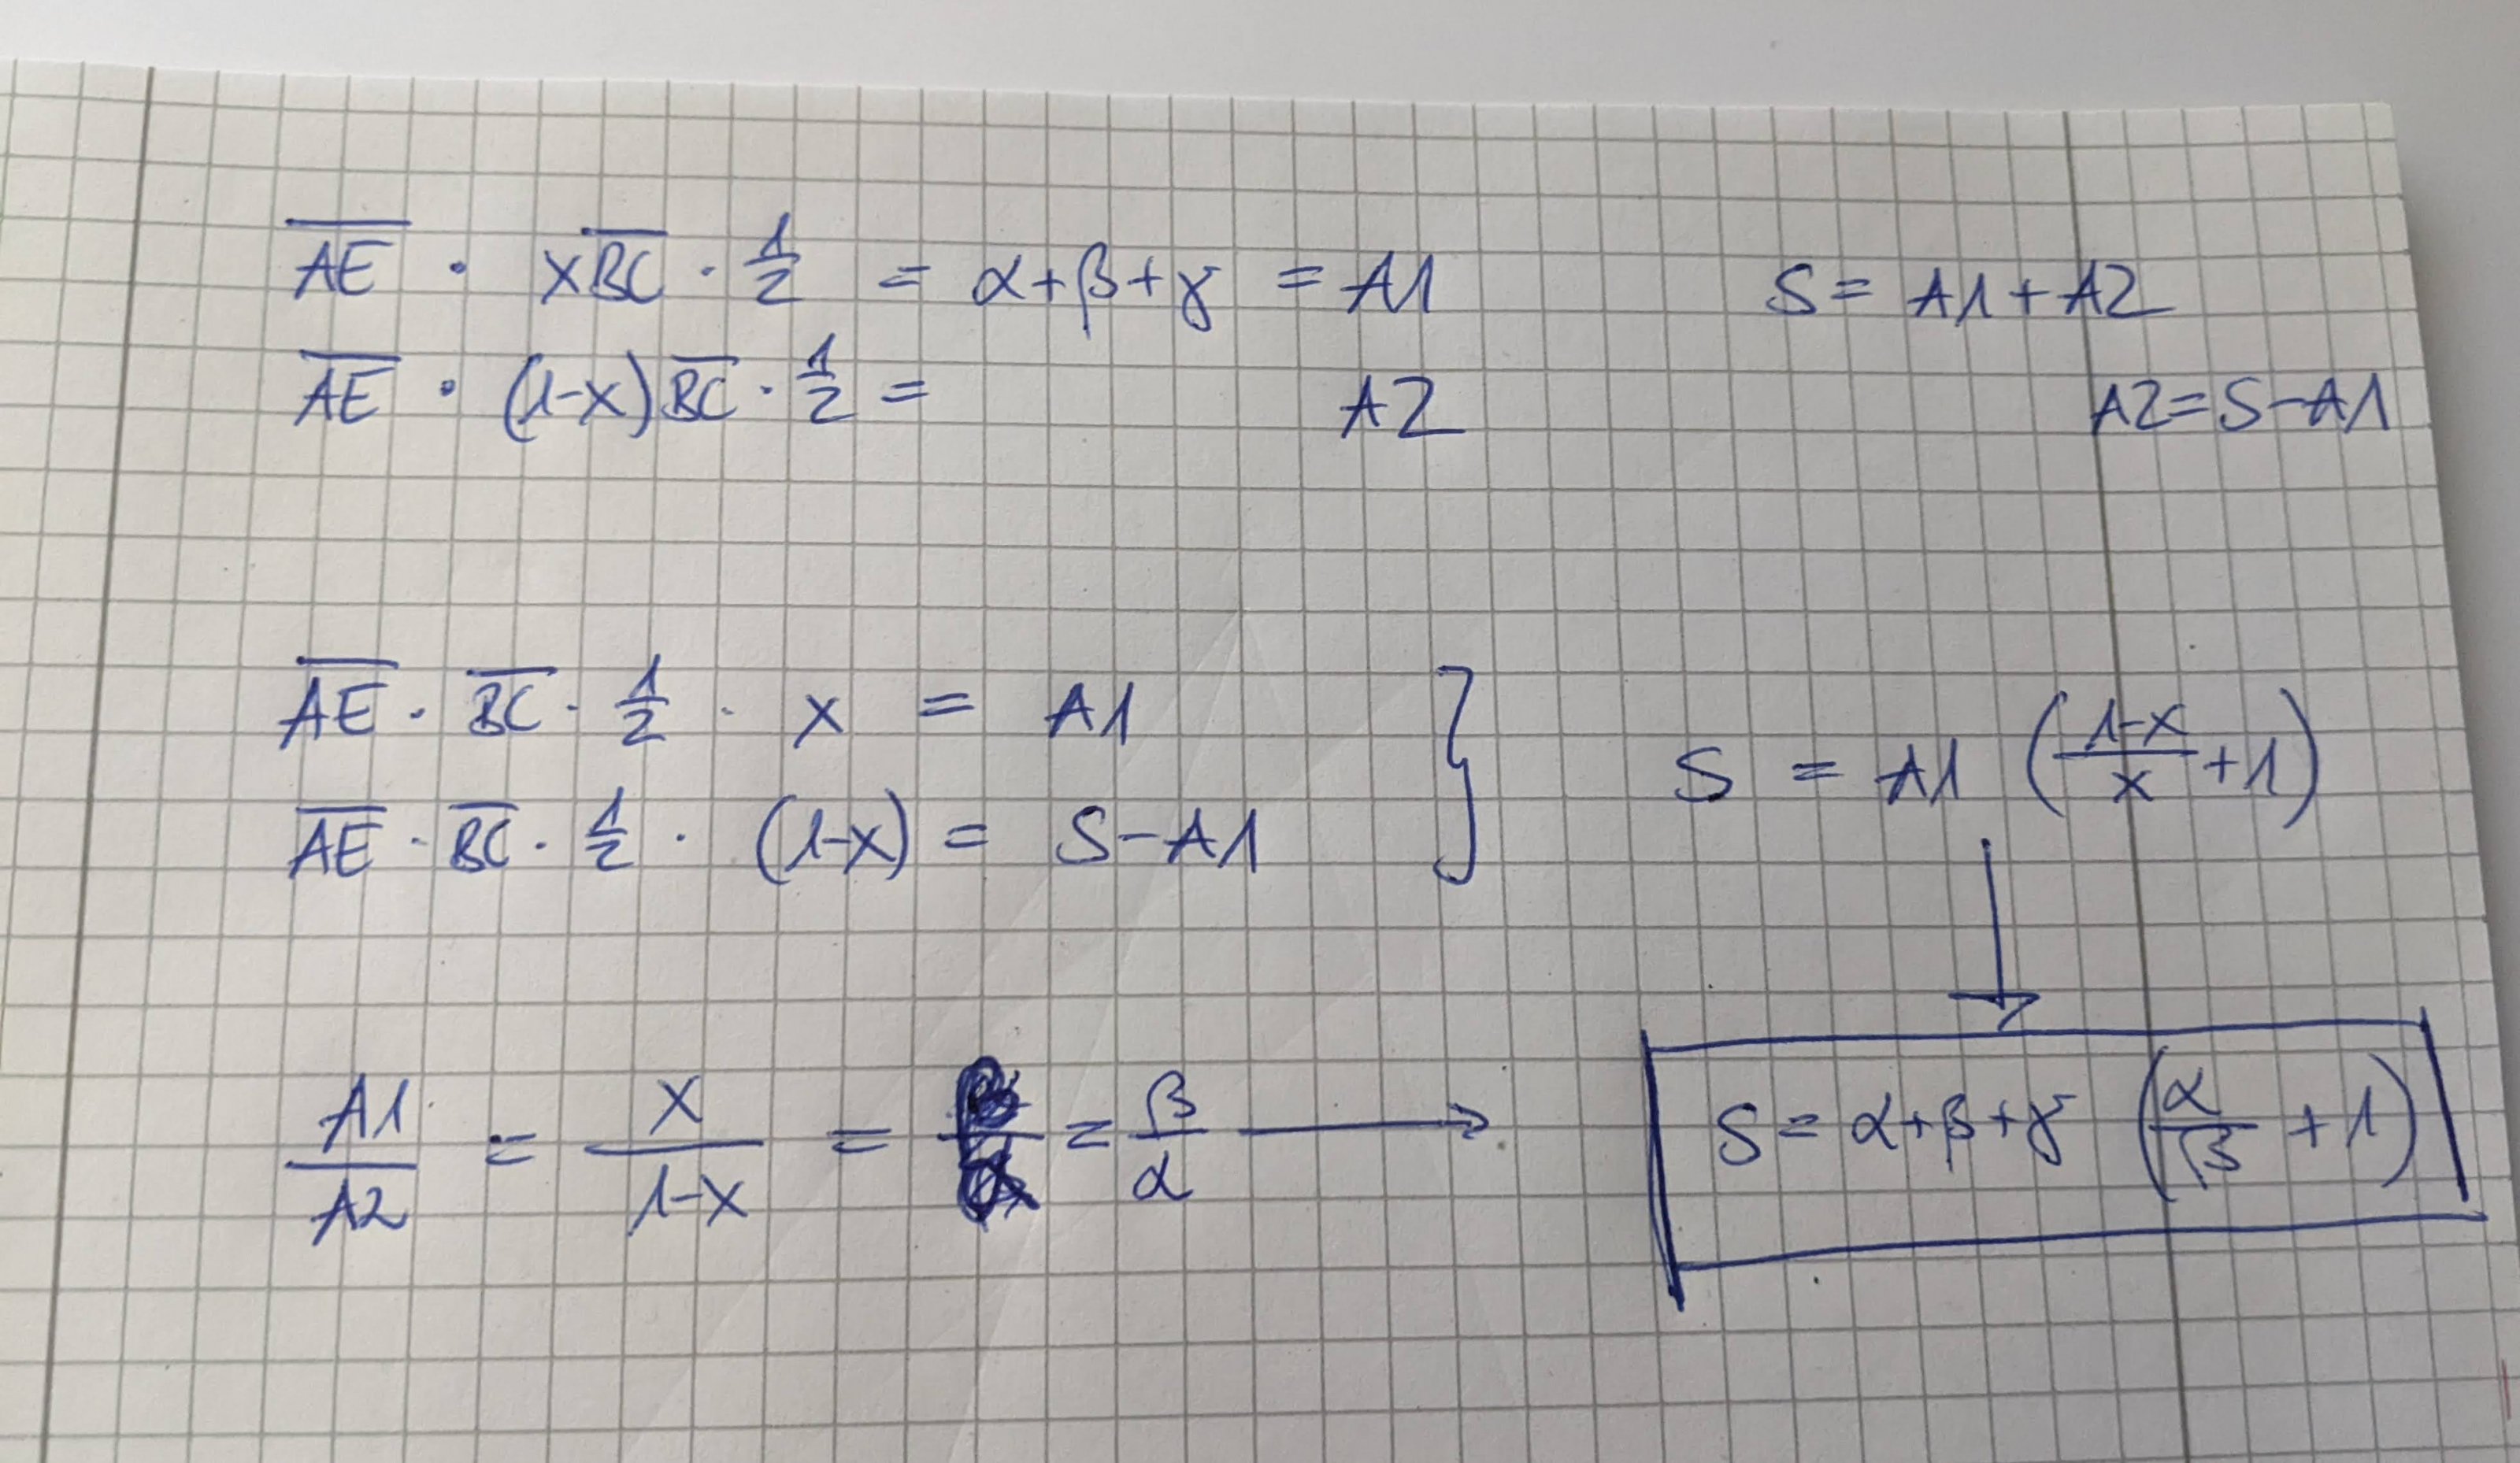 A̅E̅ · xB̅C̅ · 1/2 = α+β+γ = A1    S = A1+A2
A̅E̅ · (1-x)B̅C̅ · 1/2 =    A2    A2=S-A1
A̅E̅ · B̅C̅ · 1/2 · x = A1
A̅E̅ · B̅C̅ · 1/2 · (1-x) = S-A1    } S = A1 ((1-x)/x +1)
A1/A2 = x/(1-x) = = β/α → S = α+β+γ (α/β + 1)